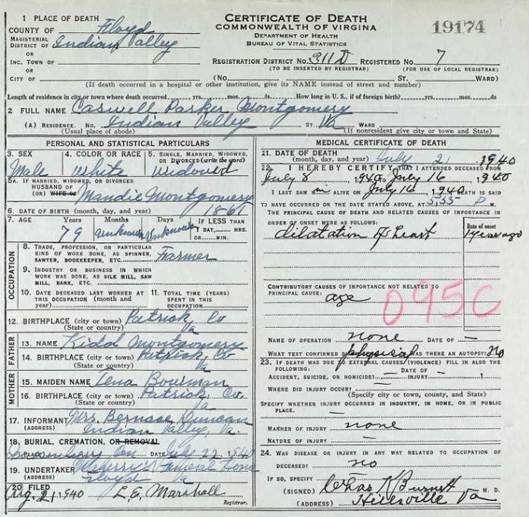 1 PLACE OF DEATH
COUNTY OF Floyd
MAGISTERIAL DISTRICT OF Indian Valley
OR
INC. TOWN OF
OR
CITY OF
CERTIFICATE OF DEATH
COMMONWEALTH OF VIRGINIA
DEPARTMENT OF HEALTH
BUREAU OF VITAL STATISTICS
19174
REGISTRATION DISTRICT NO. 311D REGISTERED NO. 7
(TO BE INSERTED BY REGISTRAR) (FOR USE OF LOCAL REGISTRAR)
(No. ST. WARD)
(If death occurred in a hospital or other institution, give its NAME instead of street and number)
Length of residence in city or town where death occurred yrs. mos. ds. How long in U.S., if of foreign birth? yrs. mos. ds.
2 FULL NAME Caswell Parker Montgomery
(A) RESIDENCE. No. Indian Valley ST. Va
(Usual place of abode) (If nonresident give city or town and State)
PERSONAL AND STATISTICAL PARTICULARS
3. SEX Male
4. COLOR OR RACE White
5. SINGLE, MARRIED, WIDOWED, OR DIVORCED (write the word) Widowed
5A. IF MARRIED, WIDOWED, OR DIVORCED
HUSBAND OF (OR) WIFE OF Mandie Montgomery
6. DATE OF BIRTH (month, day, and year)
7. AGE Years Months Days IF LESS than 1 day, hrs. or min.
79 unknown unknown
OCCUPATION
8. TRADE, PROFESSION, OR PARTICULAR KIND OF WORK DONE, AS SPINNER, SAWYER, BOOKKEEPER, ETC. Farmer
9. INDUSTRY OR BUSINESS IN WHICH WORK WAS DONE, AS SILK MILL, SAW MILL, BANK, ETC.
10. DATE DECEASED LAST WORKED AT THIS OCCUPATION (month and year)
11. TOTAL TIME (YEARS) SPENT IN THIS OCCUPATION
12. BIRTHPLACE (city or town) Patrick Co
(State or country) Va
FATHER
13. NAME Kidd Montgomery
14. BIRTHPLACE (city or town) Patrick Co
(State or country) Va
MOTHER
15. MAIDEN NAME Lena Bowman
16. BIRTHPLACE (city or town) Patrick Co.
(State or country) Va
17. INFORMANT Mrs. Bernace Duncan
Indian Valley, Va.
18. BURIAL, CREMATION, OR REMOVAL
July 22 1940
19. UNDERTAKER Funeral Home
Floyd Va
20. FILED Aug. 21 1940 L.E. Marshall
Registrar.
MEDICAL CERTIFICATE OF DEATH
21. DATE OF DEATH (month, day, and year) July 21 1940
22. I HEREBY CERTIFY THAT I ATTENDED DECEASED FROM
July 1940 TO July 16 1940
I LAST SAW him ALIVE ON July 16 1940 DEATH IS SAID
TO HAVE OCCURRED ON THE DATE STATED ABOVE, AT P M.
THE PRINCIPAL CAUSE OF DEATH AND RELATED CAUSES OF IMPORTANCE IN ORDER OF ONSET WERE AS FOLLOWS:
Date of onset
dilatation of heart
CONTRIBUTORY CAUSES OF IMPORTANCE NOT RELATED TO PRINCIPAL CAUSE:
age
095C
NAME OF OPERATION none
WHAT TEST CONFIRMED physical WAS THERE AN AUTOPSY? no
23. IF DEATH WAS DUE TO EXTERNAL CAUSES (VIOLENCE) FILL IN ALSO THE FOLLOWING:
ACCIDENT, SUICIDE, OR HOMICIDE? DATE OF INJURY
WHERE DID INJURY OCCUR?
(Specify city or town, county, and State)
SPECIFY WHETHER INJURY OCCURRED IN INDUSTRY, IN HOME, OR IN PUBLIC PLACE.
MANNER OF INJURY none
NATURE OF INJURY
24. WAS DISEASE OR INJURY IN ANY WAY RELATED TO OCCUPATION OF DECEASED? no
IF SO, SPECIFY
(SIGNED) Chas K Burnett M.D.
(ADDRESS) Hillsville Va